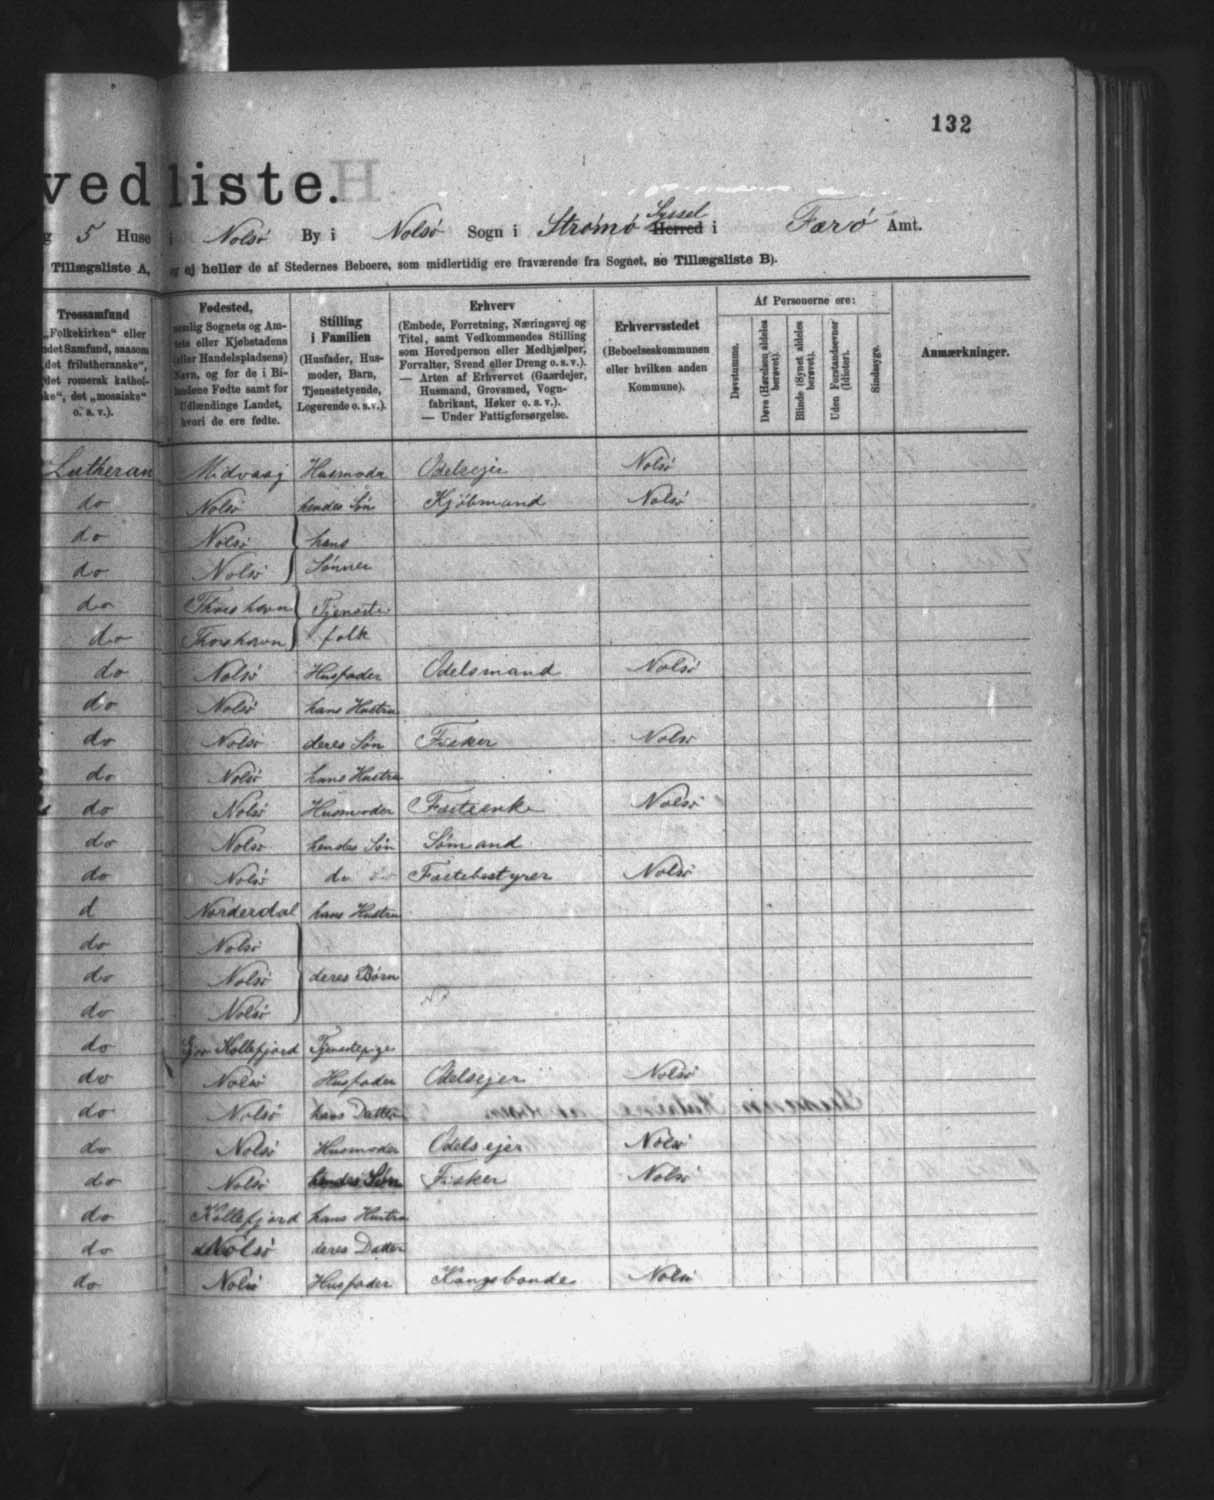 132
vedliste.
5 Huse i Nolsø By i Nolsø Sogn i Strømø Syssel Herred i Færø Amt.
Tillægsliste A, og ej heller de af Stedernes Beboere, som midlertidig ere fraværende fra Sognet, se Tillægsliste B).
Trossamfund
„Folkekirken“ eller
ndet Samfund, saasom
„det frilutheranske“,
det romersk kathol-
ke“, det „mosaiske“
o. s. v.).
Fødested,
nemlig Sognets og Am-
tets eller Kjøbstadens
(eller Handelspladsens)
Navn, og for de i Bi-
landene Fødte samt for
Udlændinge Landet,
hvori de ere fødte.
Stilling
i Familien
(Husfader, Hus-
moder, Barn,
Tjenestetyende,
Logerende o. s. v.).
Erhverv
(Embede, Forretning, Næringsvej og
Titel, samt Vedkommendes Stilling
som Hovedperson eller Medhjælper,
Forvalter, Svend eller Dreng o. s. v.).
— Arten af Erhvervet (Gaardejer,
Husmand, Grovsmed, Vogn-
fabrikant, Høker o. s. v.).
— Under Fattigforsørgelse.
Erhvervsstedet
(Beboelseskommunen
eller hvilken anden
Kommune).
Af Personerne ere:
Døvstumme.
Døve (Hørelsen aldeles
berøvet).
Blinde (Synet aldeles
berøvet).
Uden Forstandsevner
(Idioter).
Sindssyge.
Anmærkninger.
Lutheran Midvaag Husmoder Odelsejer Nolsø
do Nolsø hendes Søn Kjøbmand Nolsø
do Nolsø hans
do Nolsø Sønner
do Thorshavn Tjeneste
do Thorshavn folk
do Nolsø Husfader Odelsmand Nolsø
do Nolsø hans Hustru
do Nolsø deres Søn Fisker Nolsø
do Nolsø hans Hustru
do Nolsø Husmoder Fæsteenke Nolsø
do Nolsø hendes Søn Sømand
do Nolsø do do Fæstebestyrer Nolsø
d Norderdal hans Hustru
do Nolsø
do Nolsø deres Børn
do Nolsø
do Kollefjord Tjenestepige
do Nolsø Husfader Odelsejer Nolsø
do Nolsø hans Datter
do Nolsø Husmoder Odelsejer Nolsø
do Nolsø hendes Søn Fisker Nolsø
do Kollefjord hans Hustru
do Nolsø deres Datter
do Nolsø Husfader Kongsbonde Nolsø